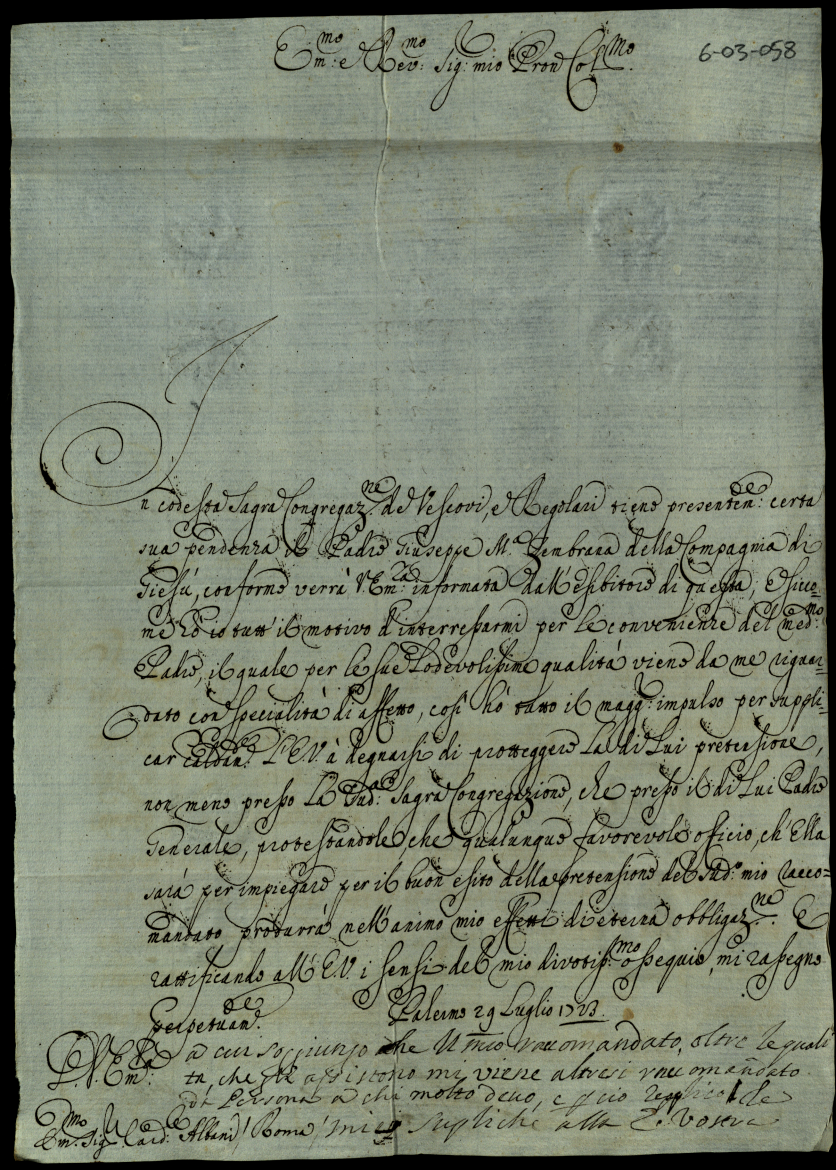 Em:mo e Rev:mo Sig: mio Pron Col:mo
6-03-058
In codesta Sagra Congregaz:ne de Vescovi, e Regolari tiene presentem:te certa
sua pendenza il Padre Giuseppe M:a Zembrana della Compagnia di
Giesù, conforme verrà V. Em:za informata dall'esibitore di questa, E sicco=
me hò io tutt'il motivo d'interressarmi per le convenienze del med:mo
Padre, il quale per le sue lodevolissime qualità viene da me riguar=
dato con specialità di affetto, così hò tutto il magg:r impulso per suppli=
car caldam:te l'E.V. à degnarsi di proteggere la di lui pretensione,
non meno presso la Sud:a Sagra Congregazione, che presso il di lui Padre
Generale, protestandole che qualunque favorevole officio, ch'Ella
sarà per impiegare per il buon esito della pretensione del Sud:o mio racco=
mandato produrrà nell'animo mio effetti di eterna obbligaz:ne. E
rattificando all'E.V. i sensi del mio divotiss:mo ossequio, mi rassegno
perpetuam:te Palermo 29 Luglio 1723
D. V. Em:za a cui soggiungo che il mio raccomandato, oltre le quali
tà, che gli assistono mi viene altresì raccomandato
da Persona a chi molto devo, e perciò replico le
Em:mo Sig:r Card:le Albani / Roma / mie supliche alla E. Vostra